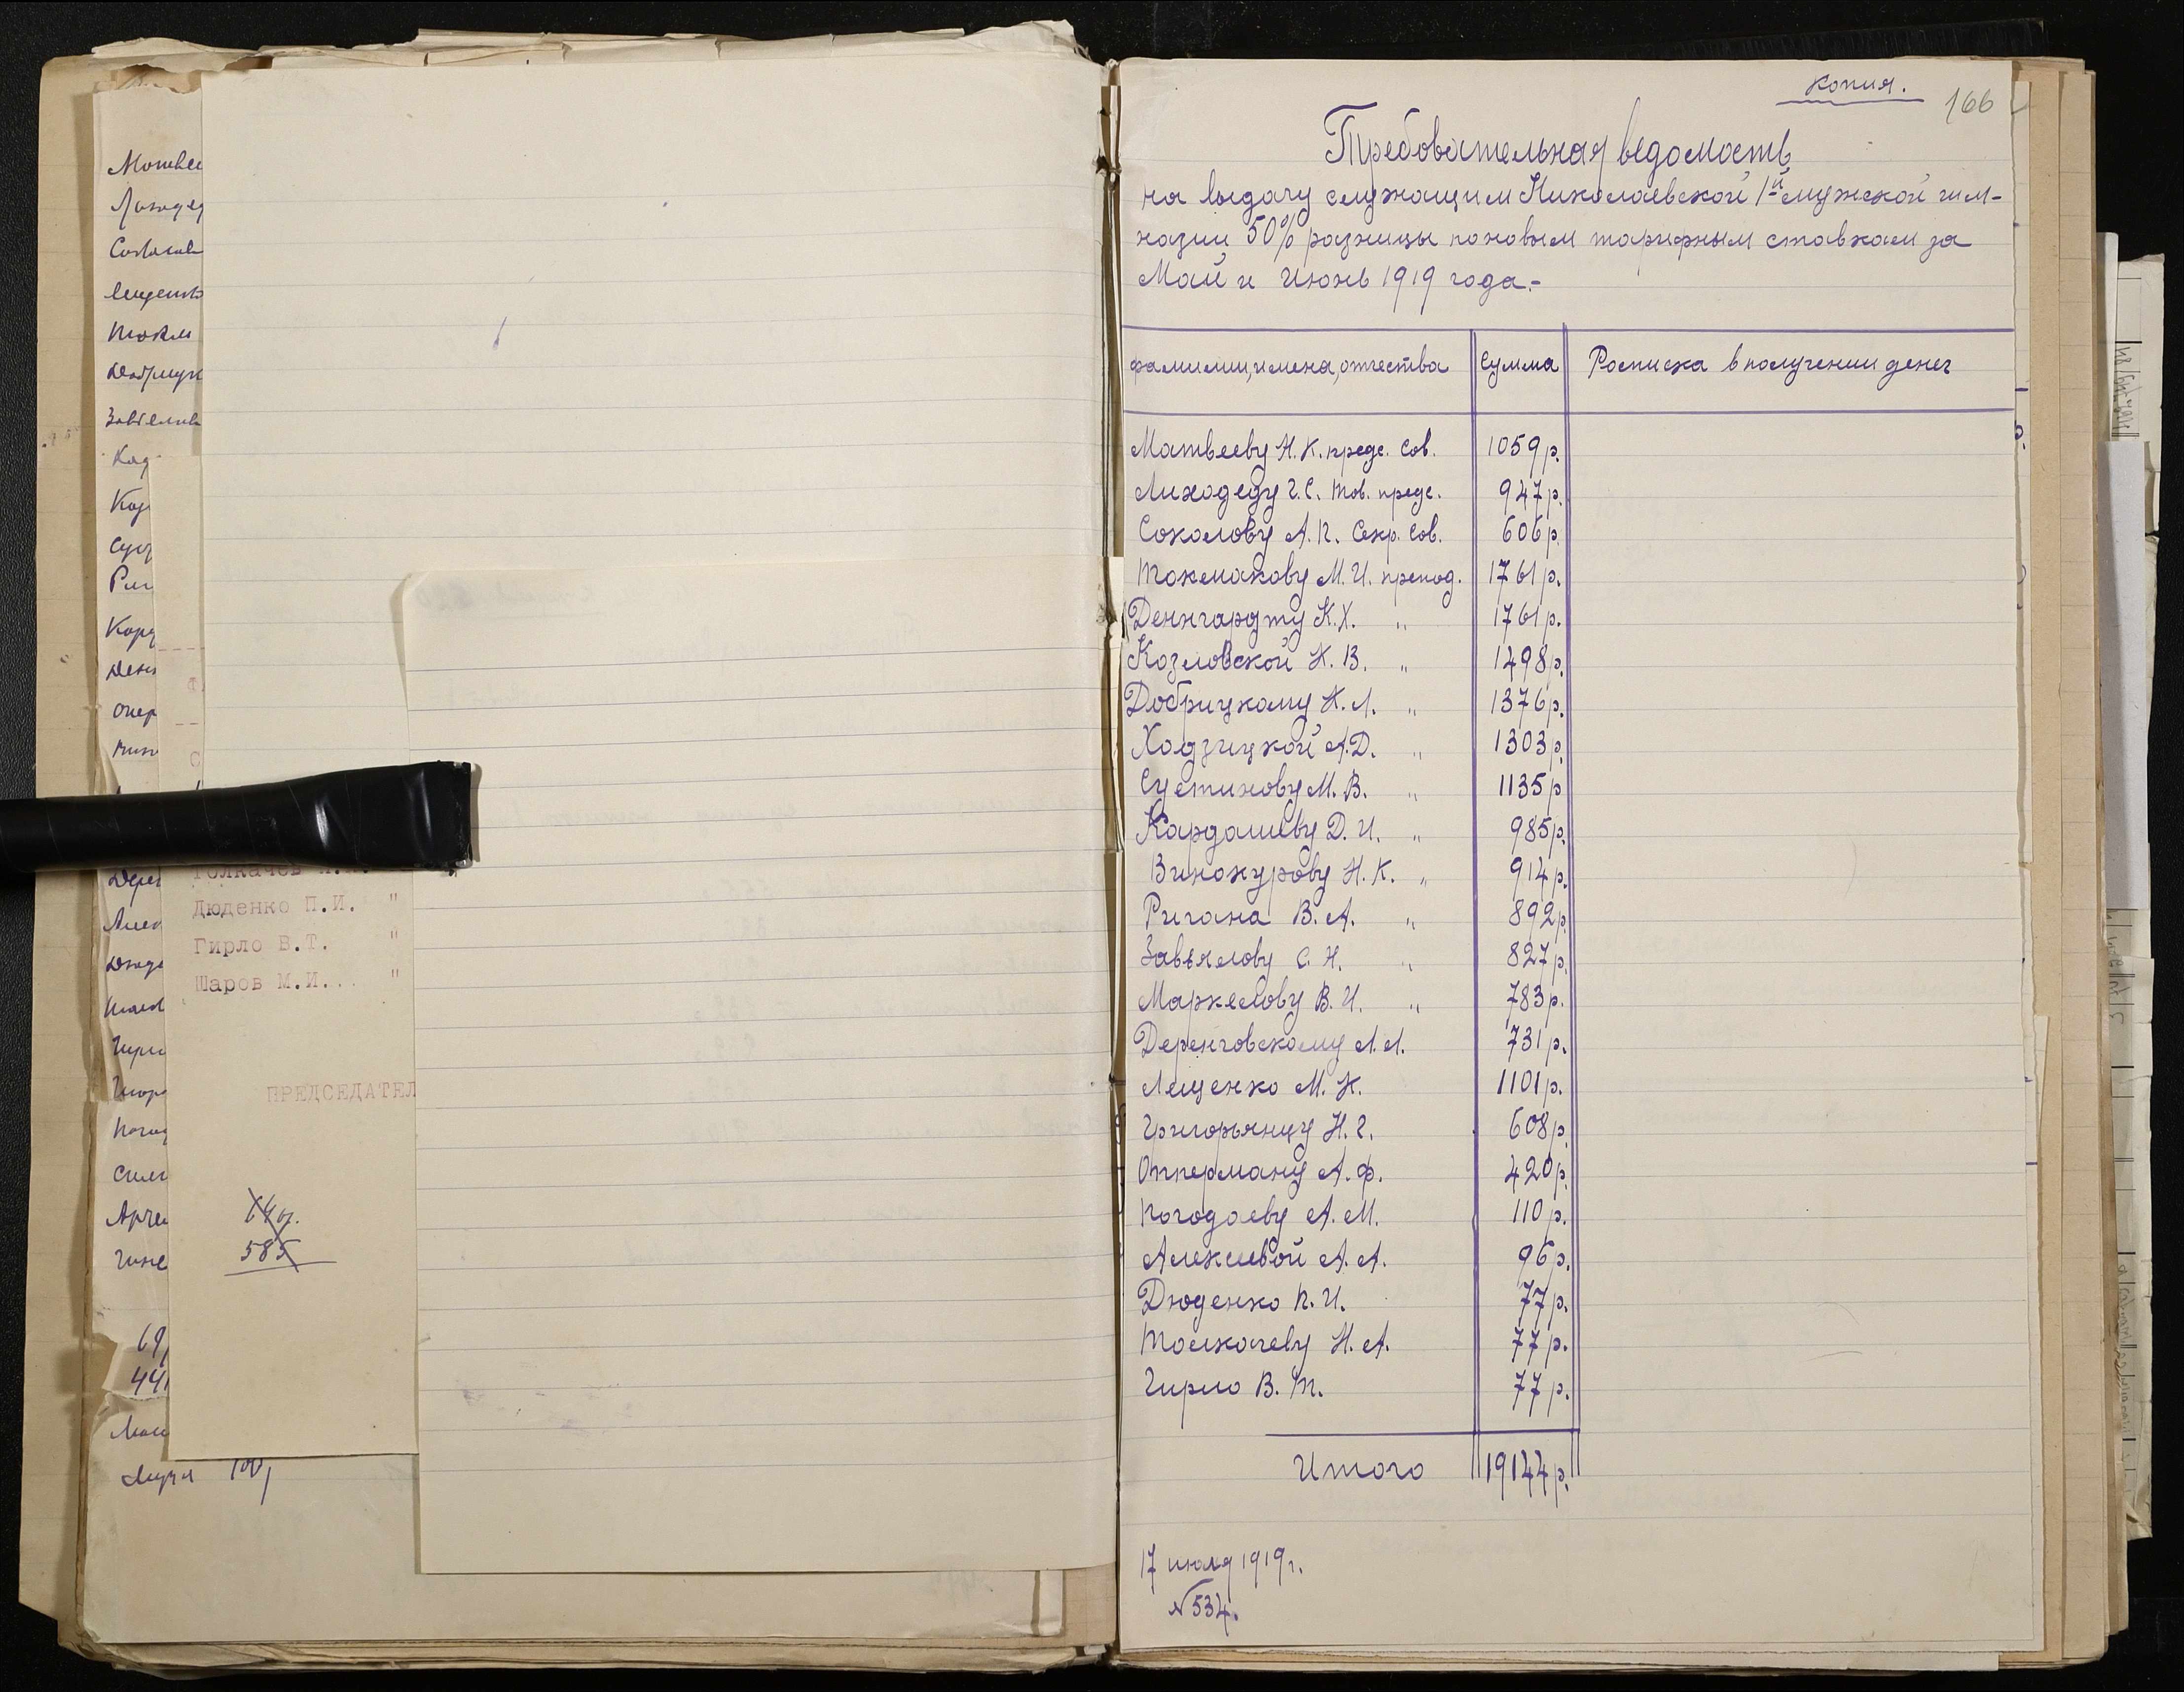 Матвее
Лиходед
Соколов
Лещенко
Токм
Добрицк
Завялов
Коз
Сус
Риг
Кард
Денн
Опер
Вин
Дерен
Алек
Дюде
Гирл
Григ
Погод
Толкачев
Дюденко П.И. "
Гирло В.Т. "
Шаров М.И... "
ПРЕДСЕДАТЕЛ
585
Копия.
166
Требовательная ведомость
на выдачу служащим Николаевской 1й мужской гим-
назии 50% разницы по новым тарифным ставкам за
Май и Июнь 1919 года.-
фамилии, имена, отчества Сумма Росписка в получении денег
Матвееву Н. К. предс. Сов. 1059 р.
Лиходеду Г. С. Тов. предс. 947 р.
Соколову А. П. Секр. Сов. 606 р.
Токмакову М. И. препод. 1761 р.
Деннгардту К. Х. " 1761 р.
Козловской Н. В. " 1498 р.
Добрицкому Н. Л. " 1376 р.
Ходзицкой А. Д. " 1303 р.
Сустинову М. В. " 1135 р
Кардашеву Д. И. " 985 р.
Винокурову Н. К. " 914 р.
Ригана В. А. " 892 р.
Завьялову С. Н. " 827 р.
Маркелову В. И. " 783 р.
Деренговскому Л. Л. 731 р.
Лещенко М. Н. 1101 р.
Григорьянцу Н. Г. 608 р.
Опперману А. Ф. 420 р.
Погодаеву А. М. 110 р.
Алексеевой А. А. 96 р.
Дюденко П. И. 77 р.
Толкачеву Н. А. 77 р.
Гирло В. Т. 77 р.
Итого 19144 р.
17 июля 1919 г.
№ 534.